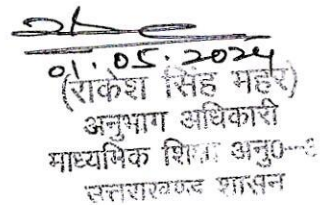 01.05.2024
(राकेश सिंह महर)
अनुभाग अधिकारी
माध्यमिक शिक्षा अनु0-
उत्तराखण्ड शासन